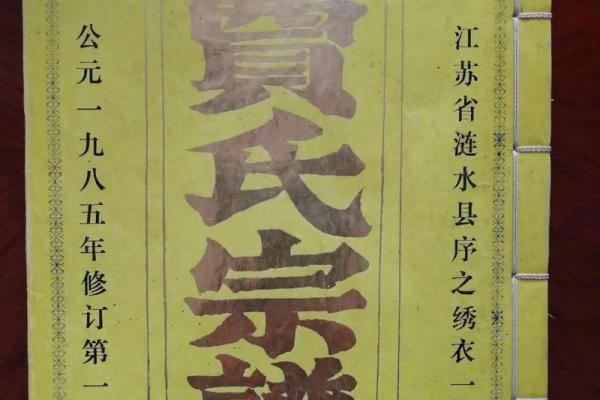 江苏省涟水县序之绣衣一
賈氏宗譜
公元一九八五年修订第一